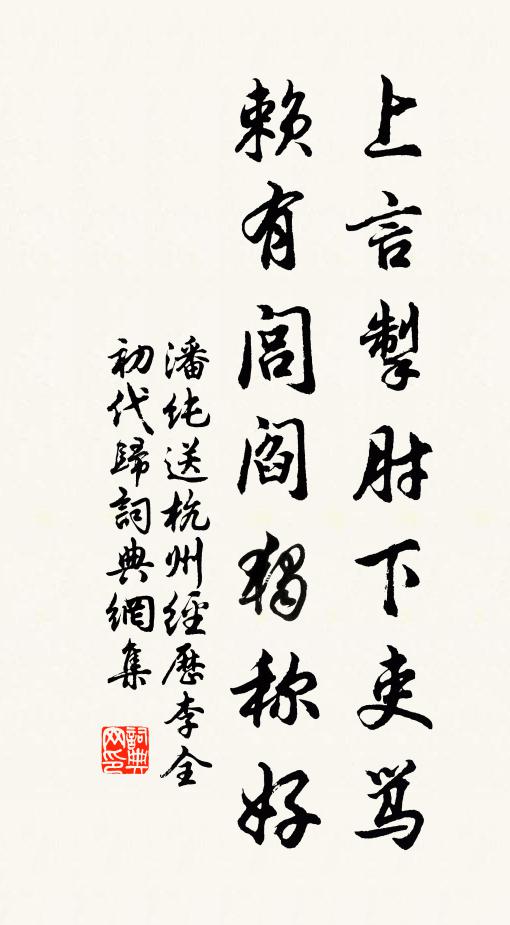 上言掣肘下吏骂
赖有闾阎独称好
潘纯送杭州经历李全
初代歸詞典網集
詞典网印